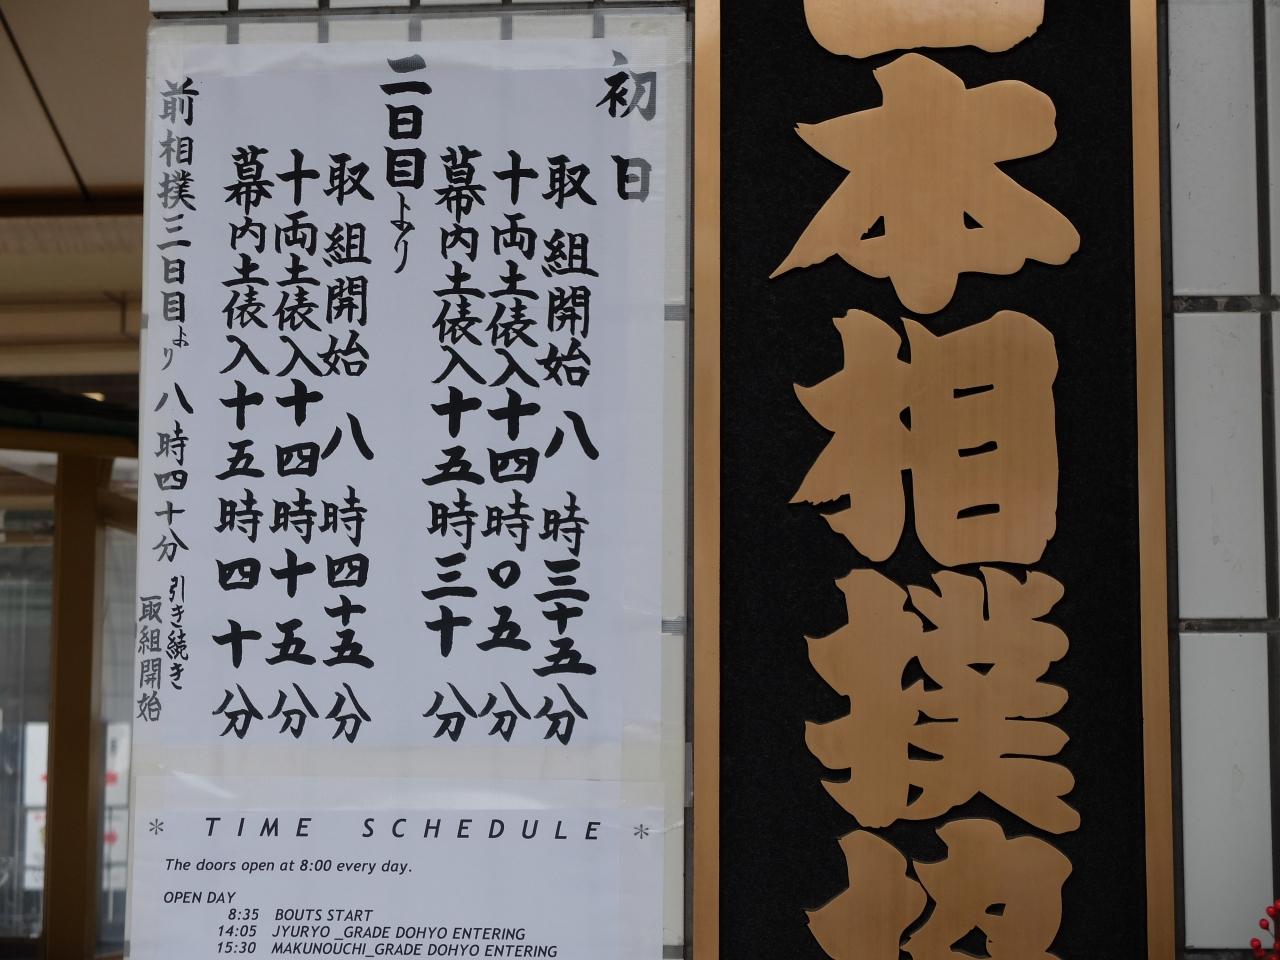 本相撲協
初日
取組開始 八時三十五分
十両土俵入十四時〇五分
幕内土俵入十五時三十分
二日目より
取組開始 八時四十五分
十両土俵入十四時十五分
幕内土俵入十五時四十分
前相撲三日目より八時四十分 引き続き
取組開始
* TIME SCHEDULE *
The doors open at 8:00 every day.
OPEN DAY
8:35 BOUTS START
14:05 JYURYO _GRADE DOHYO ENTERING
15:30 MAKUNOUCHI_GRADE DOHYO ENTERING